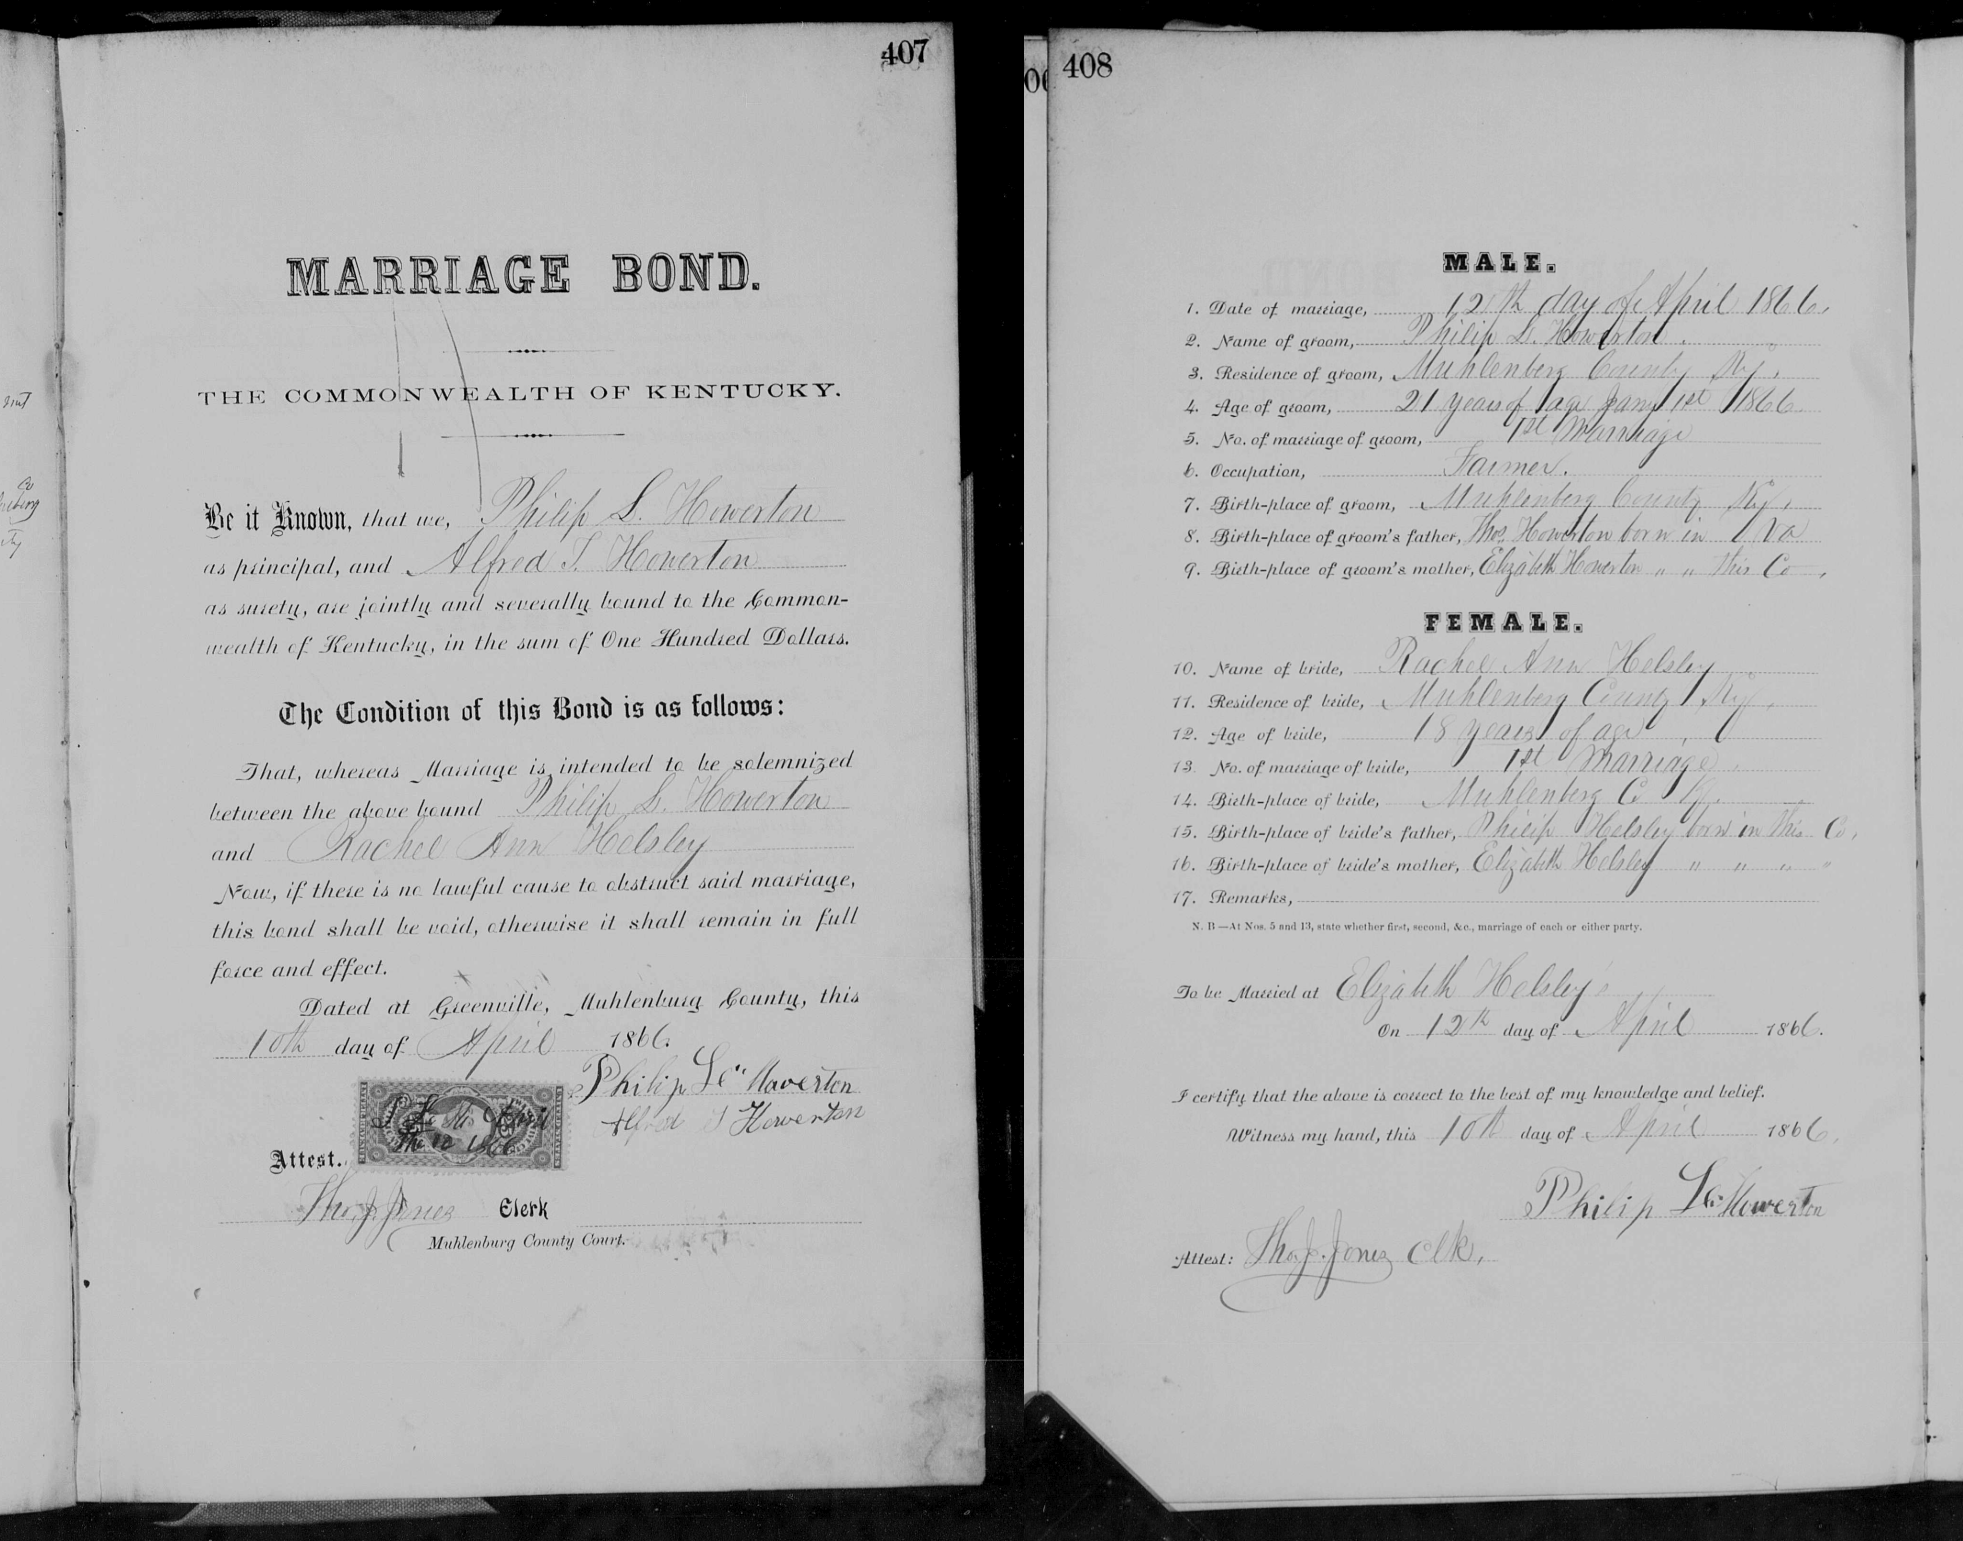 407
MARRIAGE BOND.
THE COMMONWEALTH OF KENTUCKY.
Be it Known, that we, Philip L. Howerton
as principal, and Alfred T. Howerton
as surety, are jointly and severally bound to the Common-
wealth of Kentucky, in the sum of One Hundred Dollars.
The Condition of this Bond is as follows:
That, whereas Marriage is intended to be solemnized
between the above bound Philip L. Howerton
and Rachel Ann Helsley
Now, if there is no lawful cause to obstruct said marriage,
this bond shall be void, otherwise it shall remain in full
force and effect.
Dated at Greenville, Muhlenburg County, this
10th day of April 1866.
Philip L. Howerton
Alfred T Howerton
April
10 1866
Attest.
Tho. J. Jones Clerk
Muhlenburg County Court.
408
MALE.
1. Date of marriage, 12th day of April 1866.
2. Name of groom, Philip L. Howerton.
3. Residence of groom, Muhlenberg County Ky.
4. Age of groom, 21 years of age Jany 1st 1866
5. No. of marriage of groom, 1st Marriage
6. Occupation, Farmer.
7. Birth-place of groom, Muhlenberg County Ky.
8. Birth-place of groom's father, Thos. Howerton born in Va
9. Birth-place of groom's mother, Elizabeth Howerton " " this Co.
FEMALE.
10. Name of bride, Rachel Ann Helsley
11. Residence of bride, Muhlenberg County Ky.
12. Age of bride, 18 years of age
13. No. of marriage of bride, 1st Marriage
14. Birth-place of bride, Muhlenberg Co Ky.
15. Birth-place of bride's father, Philip Helsley born in this Co.
16. Birth-place of bride's mother, Elizabeth Helsley " " " "
17. Remarks,
N. B—At Nos. 5 and 13, state whether first, second, &c., marriage of each or either party.
To be Married at Elizabeth Helsley's
On 12th day of April 1866.
I certify that the above is correct to the best of my knowledge and belief.
Witness my hand, this 10th day of April 1866.
Philip L. Howerton
Attest: Tho. J. Jones Clk.